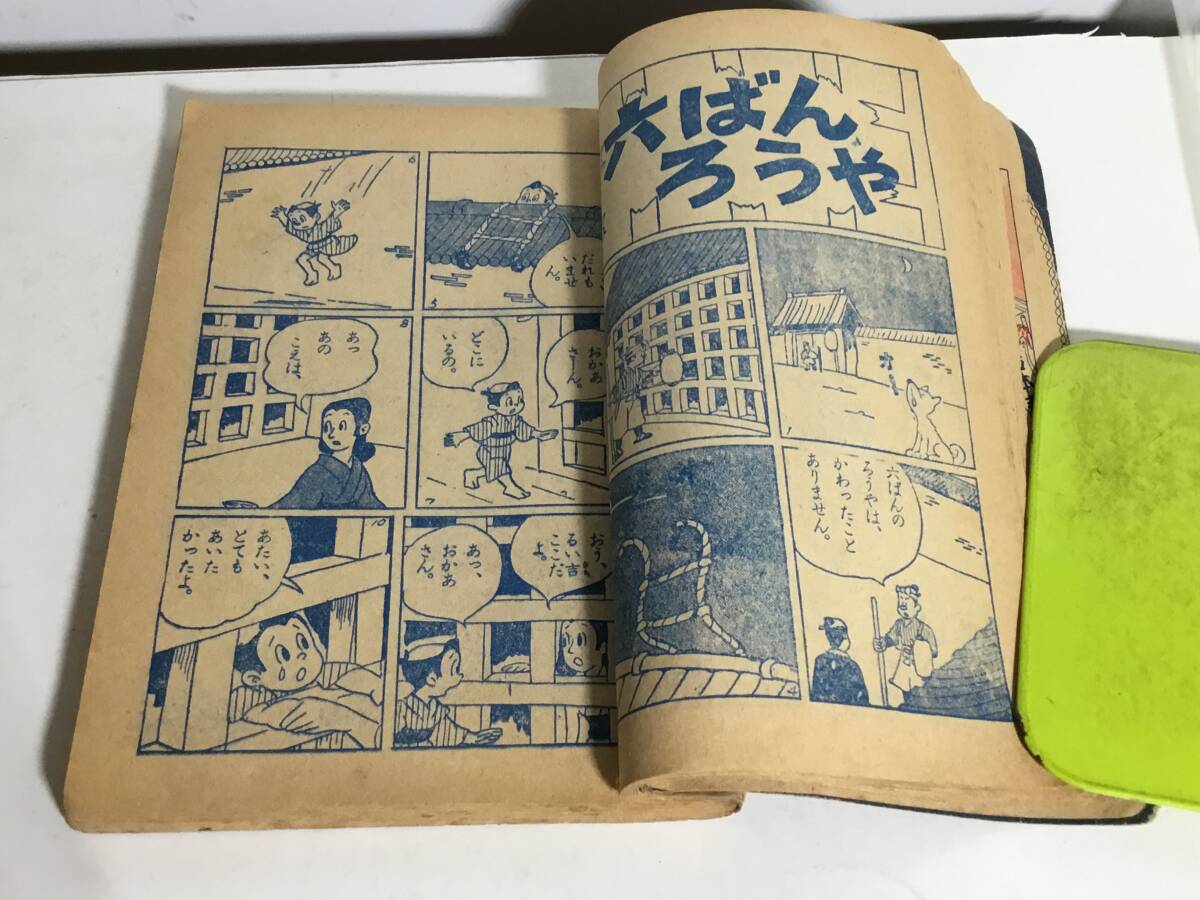 六ばん
ろうや
1
六ばんの
ろうやは、
かわったこと
ありません。
4
だれも
いませ
ん。
5
6
おかあ
さーん。
どこに
いるの。
7
あっ
あの
こえは、
8
おう、
るい吉
ここだ
よ。
あっ、
おかあ
さん。
あたい、
とても
あいた
かったよ。
10